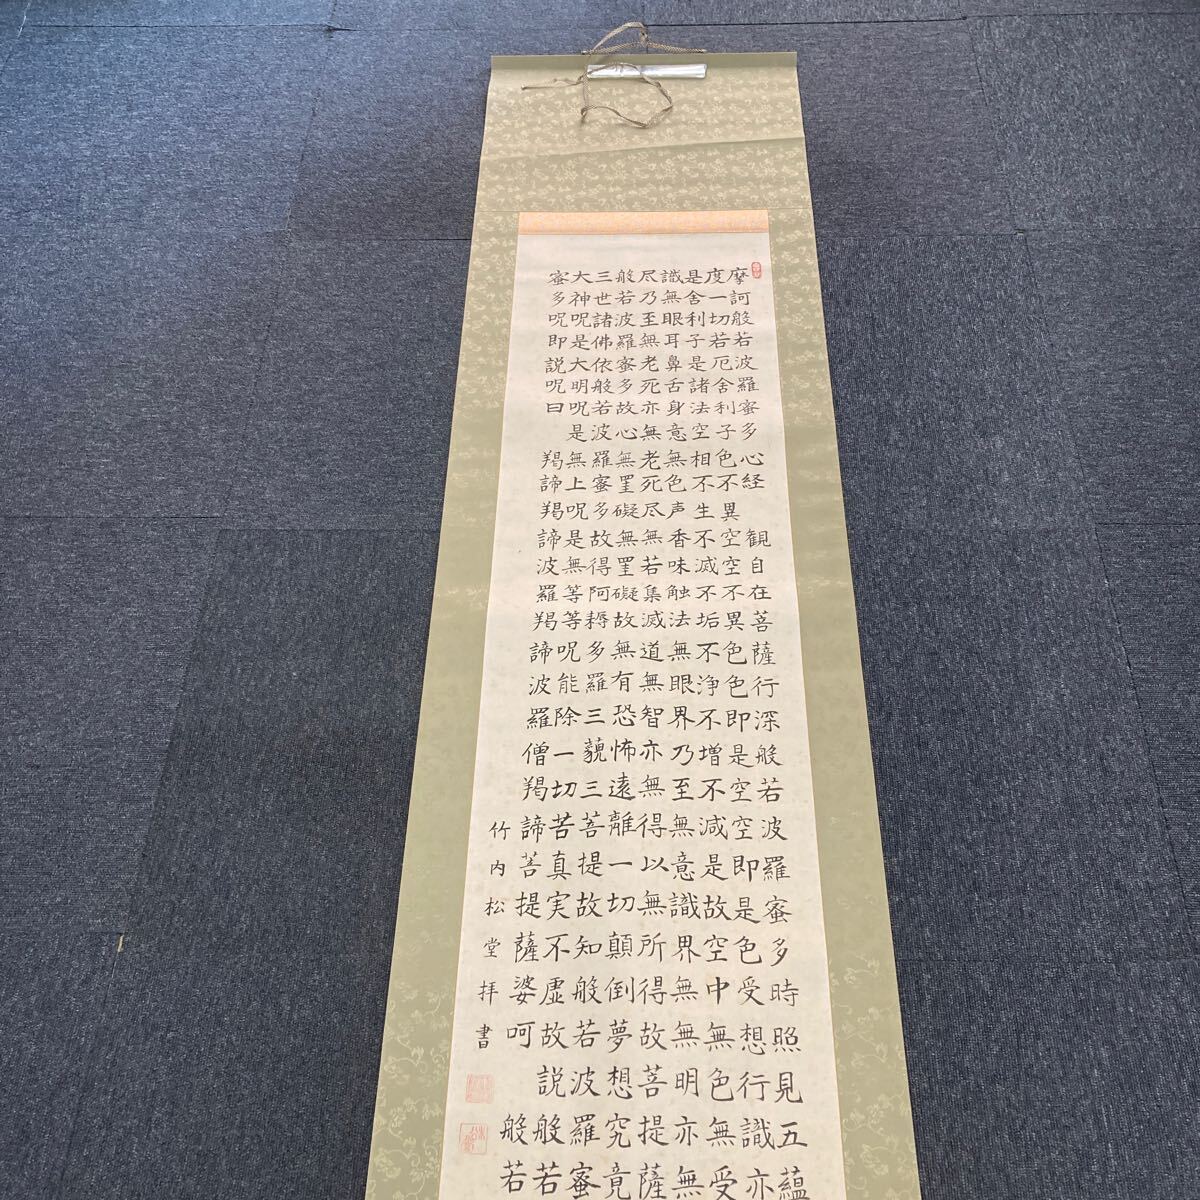 摩訶般若波羅蜜多心経　観自在菩薩行深般若波羅蜜多時照見五蘊
度一切苦厄舎利子色不異空空不異色色即是空空即是色受想行識亦
是舎利子是諸法空相不生不滅不垢不浄不増不減是故空中無色無受
識無眼耳鼻舌身意無色声香味触法無眼界乃至無意識界無無明亦無
尽乃至無老死亦無老死尽無苦集滅道無智亦無得以無所得故菩提薩
般若波羅蜜多故心無罣礙無罣礙故無有恐怖遠離一切顛倒夢想究竟
三世諸佛依般若波羅蜜多故得阿耨多羅三藐三菩提故知般若波羅蜜
大神呪是大明呪是無上呪是無等等呪能除一切苦真実不虚故説般若
蜜多呪即説呪曰　羯諦羯諦波羅羯諦波羅僧羯諦菩提薩婆呵　般若
竹内松堂拝書